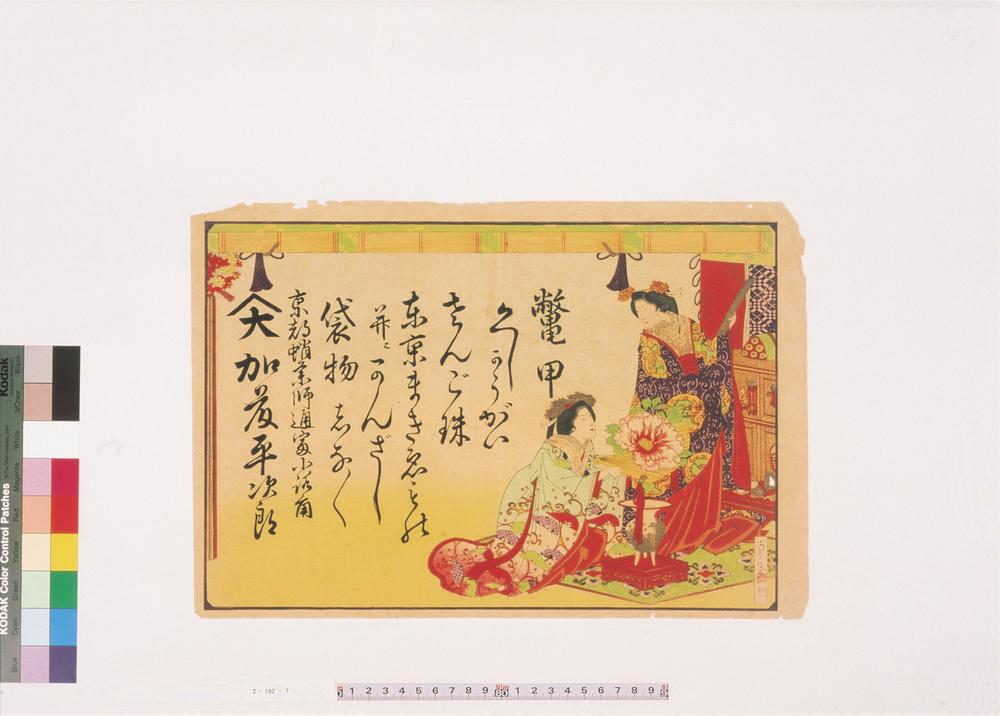 鼈甲
くしかうがい
さんご珠
東京まきゑもの
并ニかんざし
袋物しな〱
京都蛸薬師通富小路角
大 加藤平次郎
2-162-1
KODAK Color Control Patches
Kodak
Blue Cyan Green Yellow Red Magenta White 3/Color Black
1 2 3 4 5 6 7 8 9 1 2 3 4 5 6 7 8 9